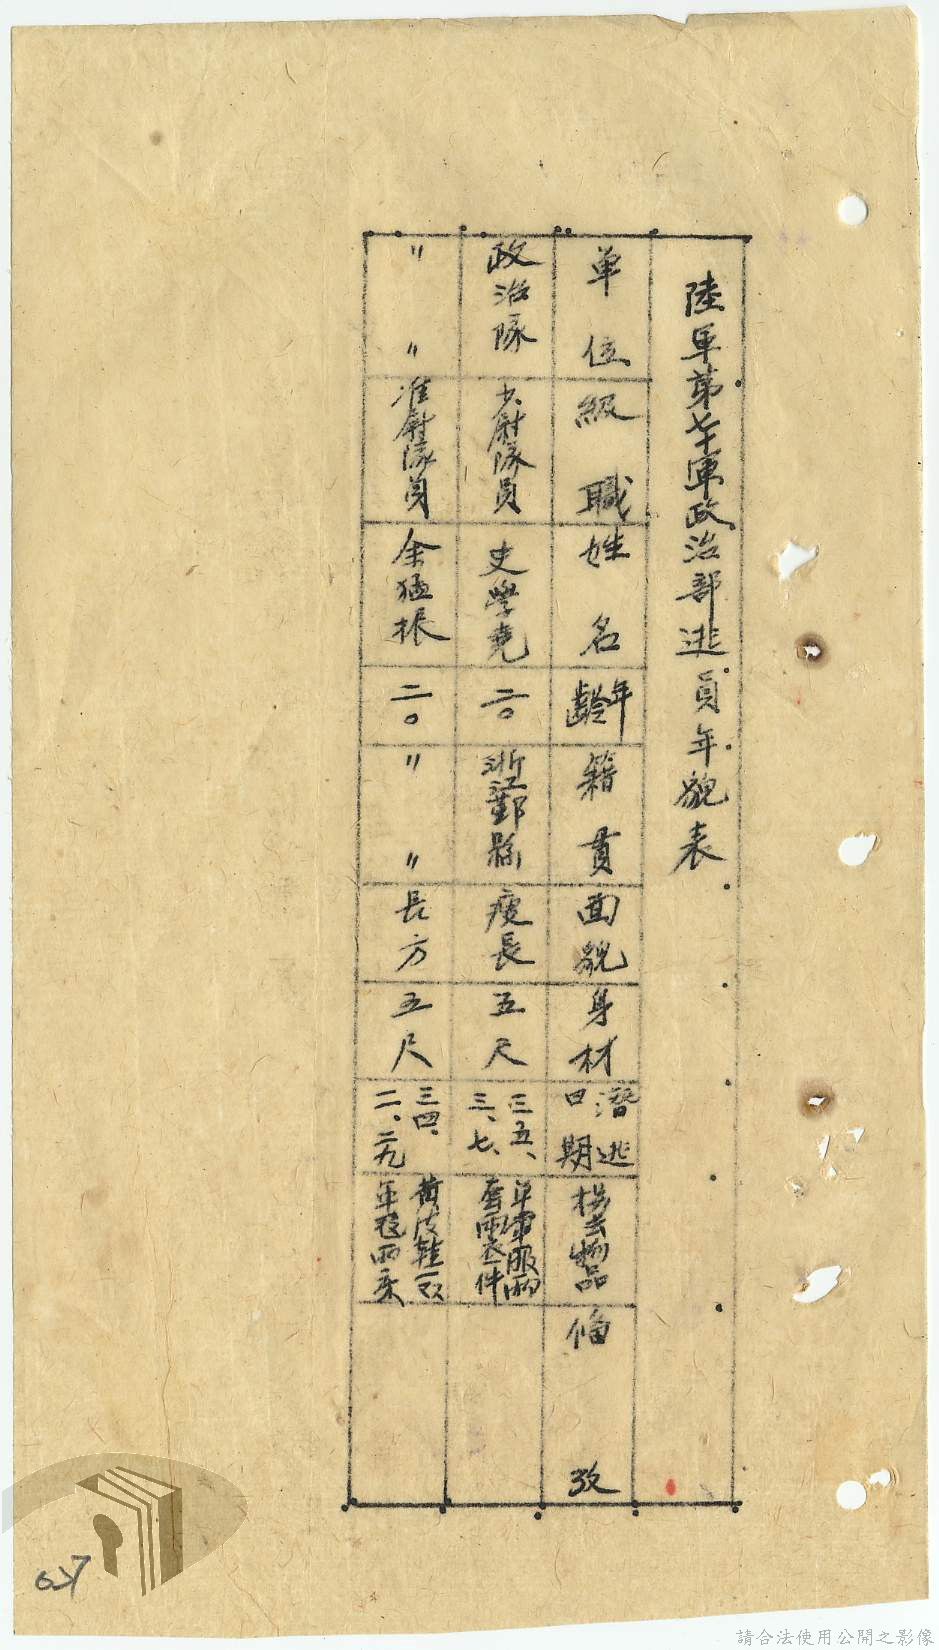 陸軍第七十軍政治部逃員年貌表
單位 級職 姓名 年齡 籍貫 面貌 身材 潛逃日期 拐去物品 備攷
政治隊 少尉隊員 史學堯 二〇 浙江鄞縣 瘦長 五尺 三五、三、七、 單軍服兩套雨衣一件
〃〃 准尉隊員 余猛振 二〇 〃〃 長方 五尺 三四、二、二九 黃皮鞋一双軍毯兩床
請合法使用公開之影像